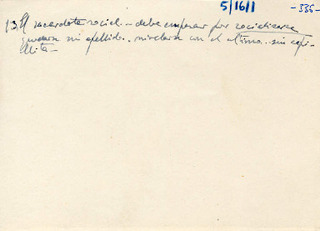 5/16/1 -336-
13. El sacerdote social. - debe empezar por socializarse
su apellido.. nivelarse con el último.. sin